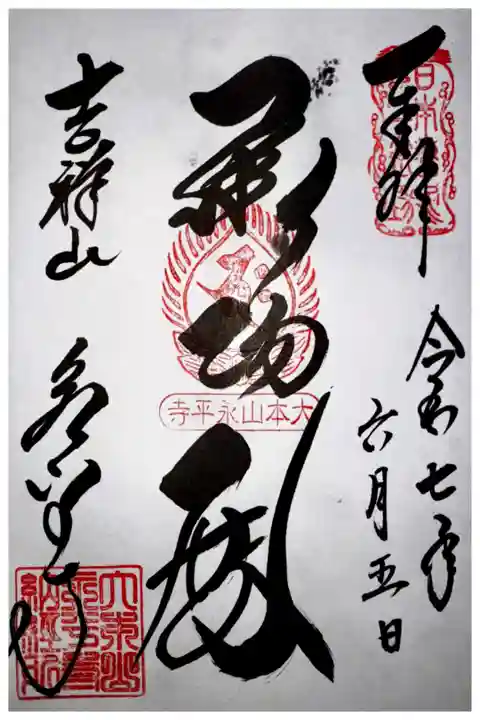 奉拝
令和七年
六月五日
承陽殿
大本山永平寺
吉祥山
永平寺
大本山永平寺納経所